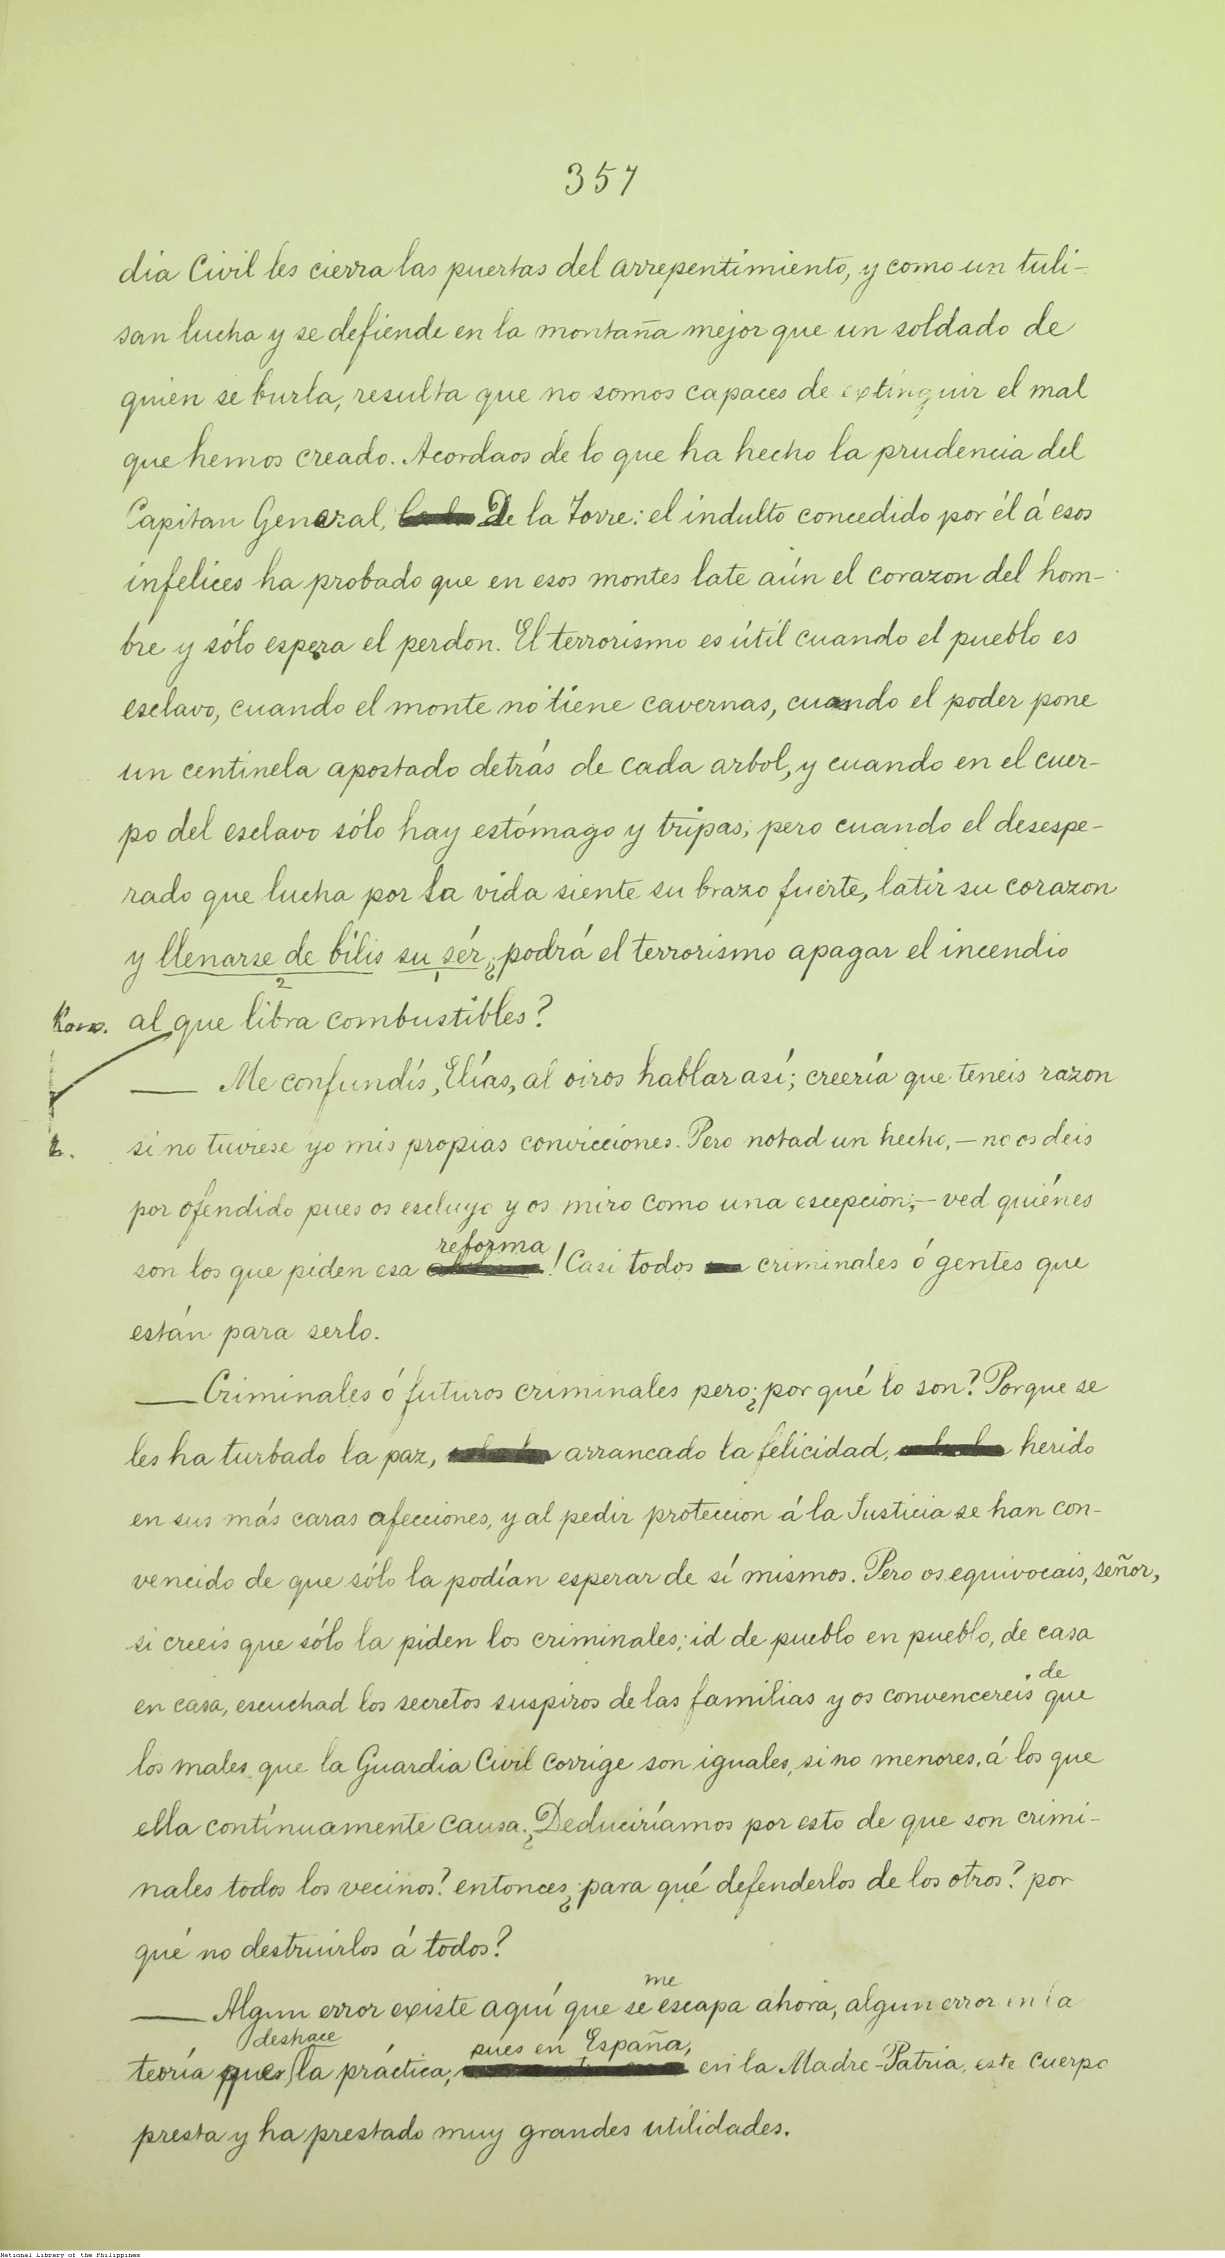 357
dia Civil les cierra las puertas del arrepentimiento, y como un tuli-
san lucha y se defiende en la montaña mejor que un soldado de
quien se burla, resulta que no somos capaces de extinguir el mal
que hemos creado. Acordaos de lo que ha hecho la prudencia del
Capitan General, De la Torre: el indulto concedido por él á esos
infelices ha probado que en esos montes late aún el corazon del hom-
bre y sólo espera el perdon. El terrorismo es útil cuando el pueblo es
esclavo, cuando el monte no tiene cavernas, cuando el poder pone
un centinela apostado detrás de cada arbol, y cuando en el cuer-
po del esclavo sólo hay estómago y tripas; pero cuando el desespe-
rado que lucha por la vida siente su brazo fuerte, latir su corazon
y llenarse de bílis su sér, ¿podrá el terrorismo apagar el incendio
2 1
al que libra combustibles?
— Me confundís, Elías, al oiros hablar así; creería que teneis razon
si no tuviese yo mis propias convicciones. Pero notad un hecho, — no os deis
por ofendido pues os escluyo y os miro como una escepcion; — ved quiénes
reforma
son los que piden esa ! Casi todos criminales ó gentes que
están para serlo.
— Criminales ó futuros criminales pero ¿por qué lo son? Porque se
les ha turbado la paz, arrancado la felicidad, herido
en sus más caras afecciones, y al pedir proteccion á la Justicia se han con-
vencido de que sólo la podían esperar de sí mismos. Pero os equivocais, señor,
si creeis que sólo la piden los criminales; id de pueblo en pueblo, de casa
de
en casa, escuchad los secretos suspiros de las familias y os convencereis que
los males que la Guardia Civil corrige son iguales, si no menores, á los que
ella contínuamente causa. ¿Deduciríamos por esto de que son crimi-
nales todos los vecinos? entonces ¿para qué defenderlos de los otros? por
qué no destruirlos á todos?
me
— Algun error existe aquí que se escapa ahora, algun error en la
deshace pues en España,
teoría que la práctica, en la Madre-Patria, este cuerpo
presta y ha prestado muy grandes utilidades.
National Library of the Philippines